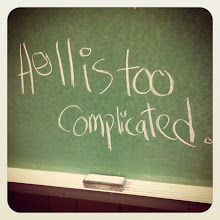 Hell is too
complicated.